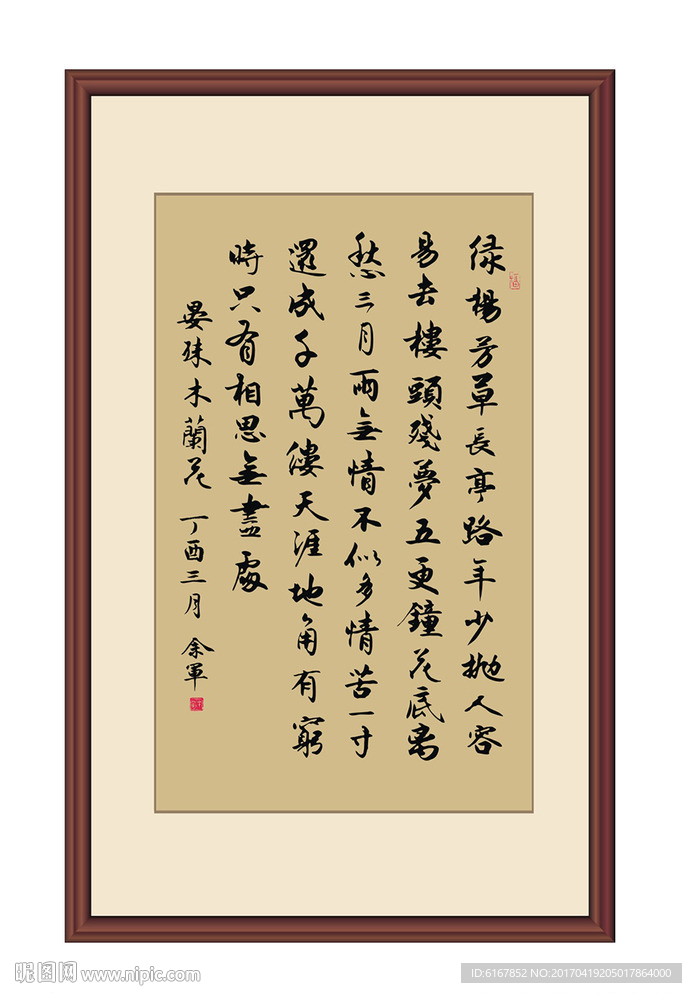 绿楊芳草長亭路年少抛人容
易去樓頭殘夢五更鐘花底离
愁三月雨無情不似多情苦一寸
還成千萬縷天涯地角有窮
時只有相思無盡處
晏殊木蘭花 丁酉三月 余軍
昵图网 www.nipic.com
ID:6167852 NO:20170419205017864000